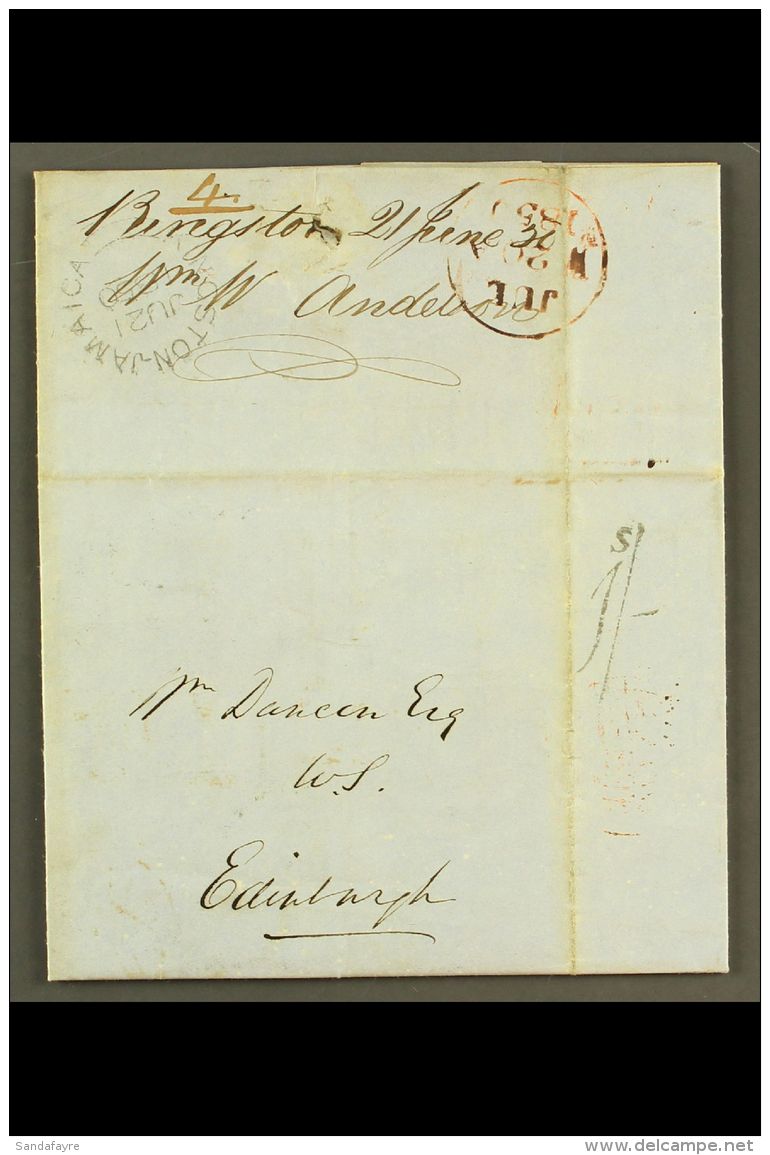 4.
Kingston 21 June 50
Wm W Anderson
KINGSTON-JAMAICA
JU21
JUL
20
1850
1/-
Wm Duncan Esq
W.S.
Edinburgh
Sandafayre
www.delcampe.net